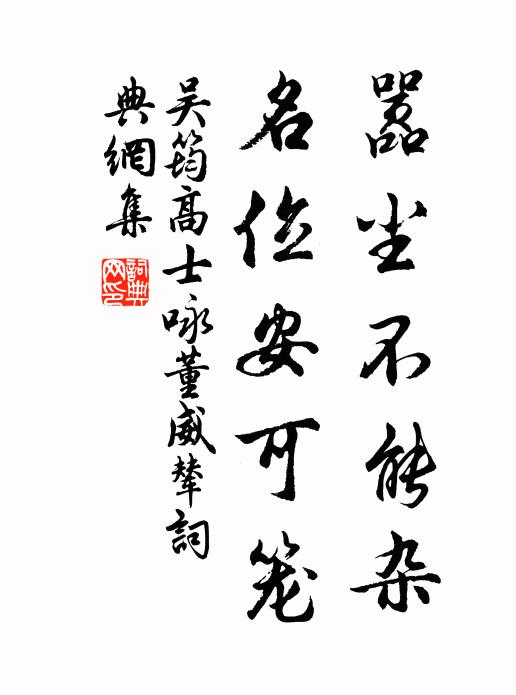 嚣尘不能杂
名位安可笼
吴筠高士咏董威辇词
典網集
詞典网印